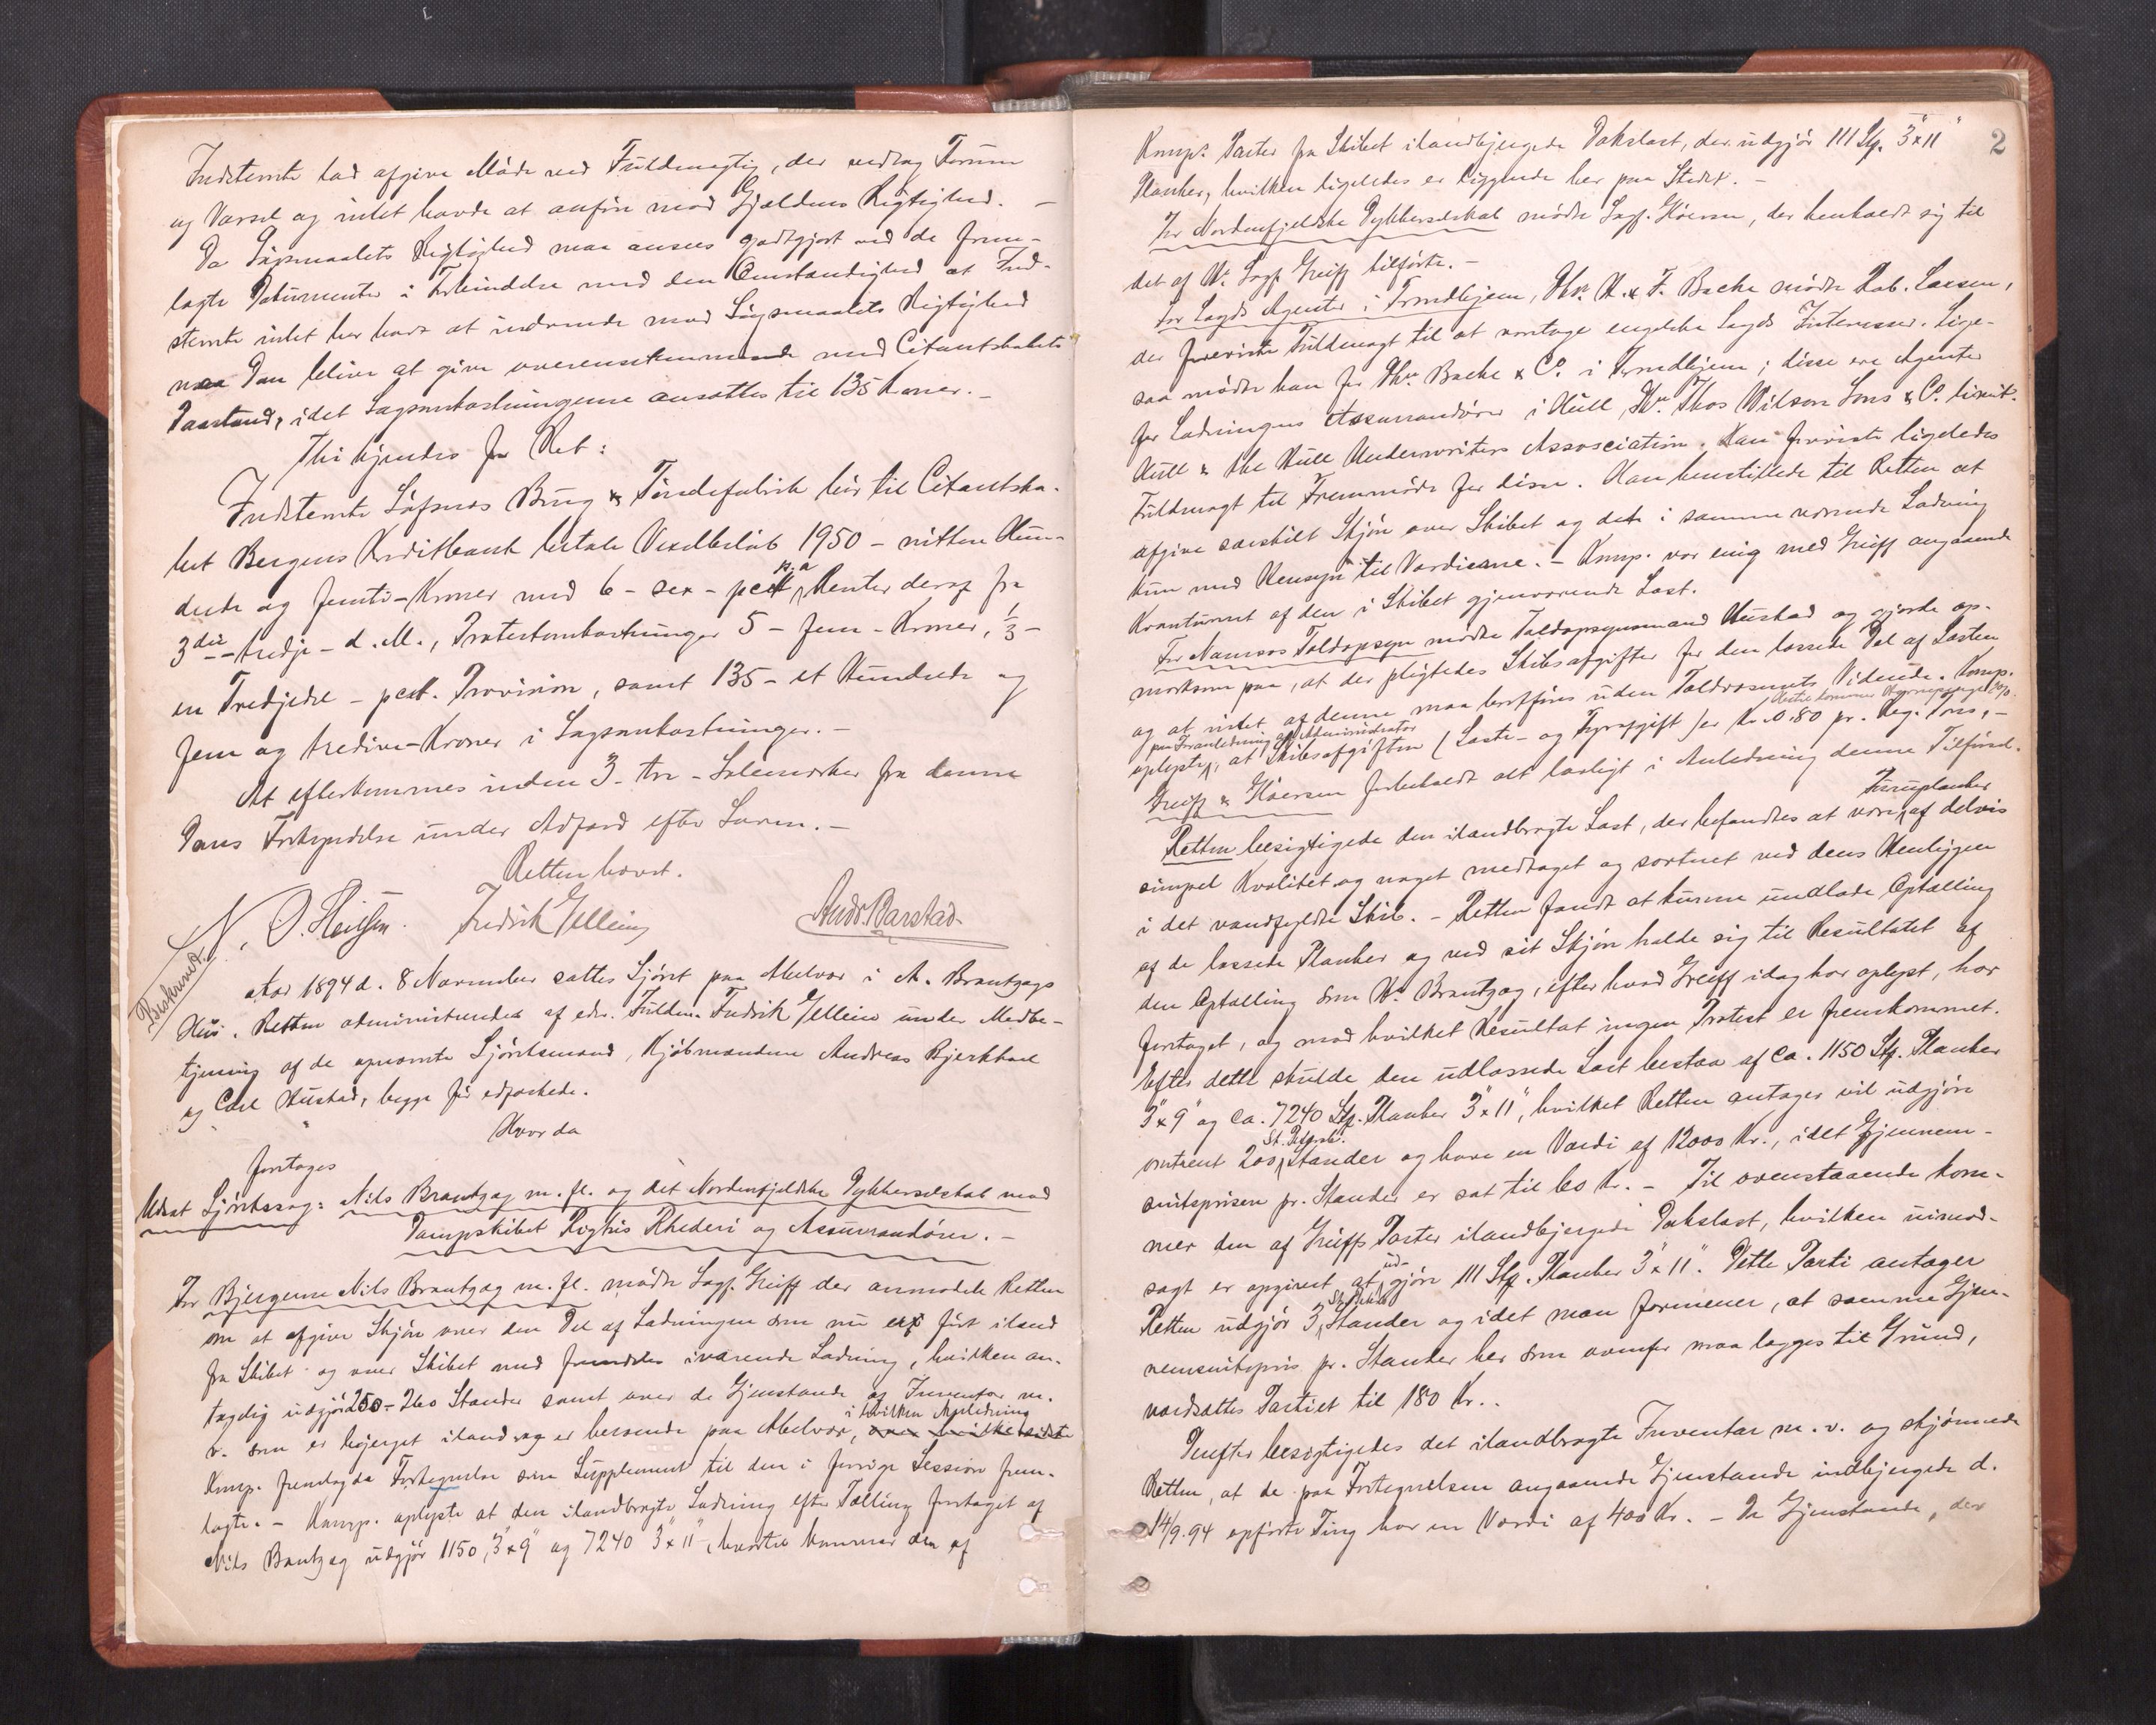 Indstevnte lod afgive Møde ved Fuldmægtig, der vedtog Forum
og Varsel og intet havde at anføre mod Gjældens Rigtighed. –
Da Søgsmaalets Rigtighed maa ansees godtgjort ved de frem-
lagte Dokumenter i Forbindelse med den Omstændighed at Ind-
stevnte intet har havt at indvende mod Søgsmaalets Rigtighed
maa Dom blive at give overensstemmende med Citantskabets
Paastand, idet Sagsomkostningerne ansættes til 135 Kroner. –
Thi kjendes for Ret:
Indstevnte Løfsnæs Brug & Tøndefabrik bør til Citantska-
bet Bergens Kreditbank betale Vexelbeløb 1950 – nitten Hun-
drede og femti – Kroner med 6 – sex – pCt p. a. Renter deraf fra
3die – tredje – d. M., Protestomkostninger 5 – fem – Kroner, 1/3 –
en Trediedel – pct. Provision, samt 135 – et Hundrede og
fem og tredive – Kroner i Sagsomkostninger. –
At efterkommes inden 3 – tre – Solemærker fra denne
Doms Forkyndelse under Adfærd efter Loven. –
Retten hævet.
Fredrik Gelleim Andr. Barstad
Beskrevet.
Aar 1894 d. 8 November sattes Sjøret paa Abelvær i A. Brantzægs
Hus. Retten administreredes af edsv. Fuldm. Fredrik Gellein under Medbe-
tjening af de opnævnte Sjøretsmænd, Kjøbmændene Andreas Bjerkhoel
og Carl Hustad, begge før edfæstede.
Hvor da
foretoges
Udsat Sjøretssag: Nils Brantzæg m. fl. og det Nordenfjeldske Dykkerselskab mod
Dampskibet Rhederi og Assurandører. –
For Bjergerne Nils Brantzæg m. fl. mødte Sagf. Greiff der anmodede Retten
om at afgive Skjøn over den Del af Ladningen som nu er ført iland
fra Skibet og over Skibet med fremdeles iværende Ladning, hvilken an-
tagelig udgjør 250 – 260 Stander samt over de Gjenstande af Inventar m.
v. som er bjerget iland og er beroende paa Abelvær, i hvilken Anledning
Komp. fremlagde Fortegnelse som Supplement til den i forrige Session frem-
lagte. – Komp. oplyste at den ilandbragte Ladning efter Tælling foretaget af
Nils Brantzæg udgjør 1150, 3" x 9" og 7240 3" x 11", hvortil kommer den af
2
Komp. Parter fra Skibet ilandbjergede Dækslast, der udgjør 111 Stp. 3" x 11"
Planker, hvilken ligeledes er liggende her paa Stedet. –
For Nordenfjeldske Dykkerselskab mødte Sagf. Høiersen, der henholdt sig til
det af Hr. Sagf. Greiff tilførte. –
For Loyds Agenter i Trondhjem, Hhr. H. & F. Bache mødte Kab. Larsen,
der foreviste Fuldmagt til at varetage engelske Loyds Interesser. Lige-
saa mødte han for Hhr. Bache & Co. i Trondhjem; disse ere Agenter
for Ladningens Assurandører i Hull, Hhr. Thos Wilson Sons & Co. limit.
Hull & the Hull Underwriters Assosciation. Han foreviste ligeledes
Fuldmagt til Fremmøde for disse. Han henstillede til Retten at
afgive særskilt Skjøn over Skibet og den i samme værende Ladning
kun med Hensyn til Værdierne. – Komp. var enig med Greiff angaaende
Kvantumet af den i Skibet gjenværende Last.
For Namsos Toldopsyn mødte Toldopsynsmand Hustad og gjorde op-
mærksom paa, at der pligtedes Skibsafgifter for den lossede Del af Lasten
og at intet af denne maa bortføres uden Toldvæsenets Vidende. Komp.
paa Foranledning af Administrator
oplyste, at Skibsafgiften (Laste- og Fyrafgift) er Kr. 0,80 pr. Reg. Tons, –
Greiff & Høiersen forbeholdt alt lovligt i Anledning denne Tilførsel.
Furuplanker
Retten besigtigede den ilandbragte Last, der befandtes at være af delvis
simpel Kvalitet og noget medtaget og sortnet ved dens Henliggen
i det vandfyldte Skib. – Retten fandt at kunne undlade Optælling
af de lossede Planker og ved sit Skjøn holde sig til Resultatet af
den Optælling som Hr. Brantzæg, efter hvad Greiff idag har oplyst, har
foretaget, og mod hvilket Resultat ingen Protest er fremkommet.
Efter dette skulde den udlossede Last bestaa af ca. 1150 Stp. Planker
3" x 9" og ca. 7240 Stp. Planker 3" x 11", hvilket Retten antager vil udgjøre
omtrent 200 St. Petersb. Stander og have en Værdi af 12000 Kr., idet Gjennem-
snitsprisen pr. Stander er sat til 60 Kr. – Til ovenstaaende kom-
mer den af Greiffs Parter ilandbjergede Dækslast, hvilken uimod-
sagt er opgivet at udgjøre 111 Stp. Planker 3" x 11". Dette Parti antager
Retten udgjør 3 Stander og idet man formener, at samme Gjen-
nemsnitspris pr. Stander her som ovenfor maa lægges til Grund,
værdsættes Partiet til 180 Kr..
Derefter besigtigedes det ilandbragte Inventar m. v. og skjønnede
Retten, at de paa Fortegnelsen angaaende Gjenstande indbjergede d.
14/9.94 opførte Ting har en Værdi af 400 Kr. – De Gjenstande, der